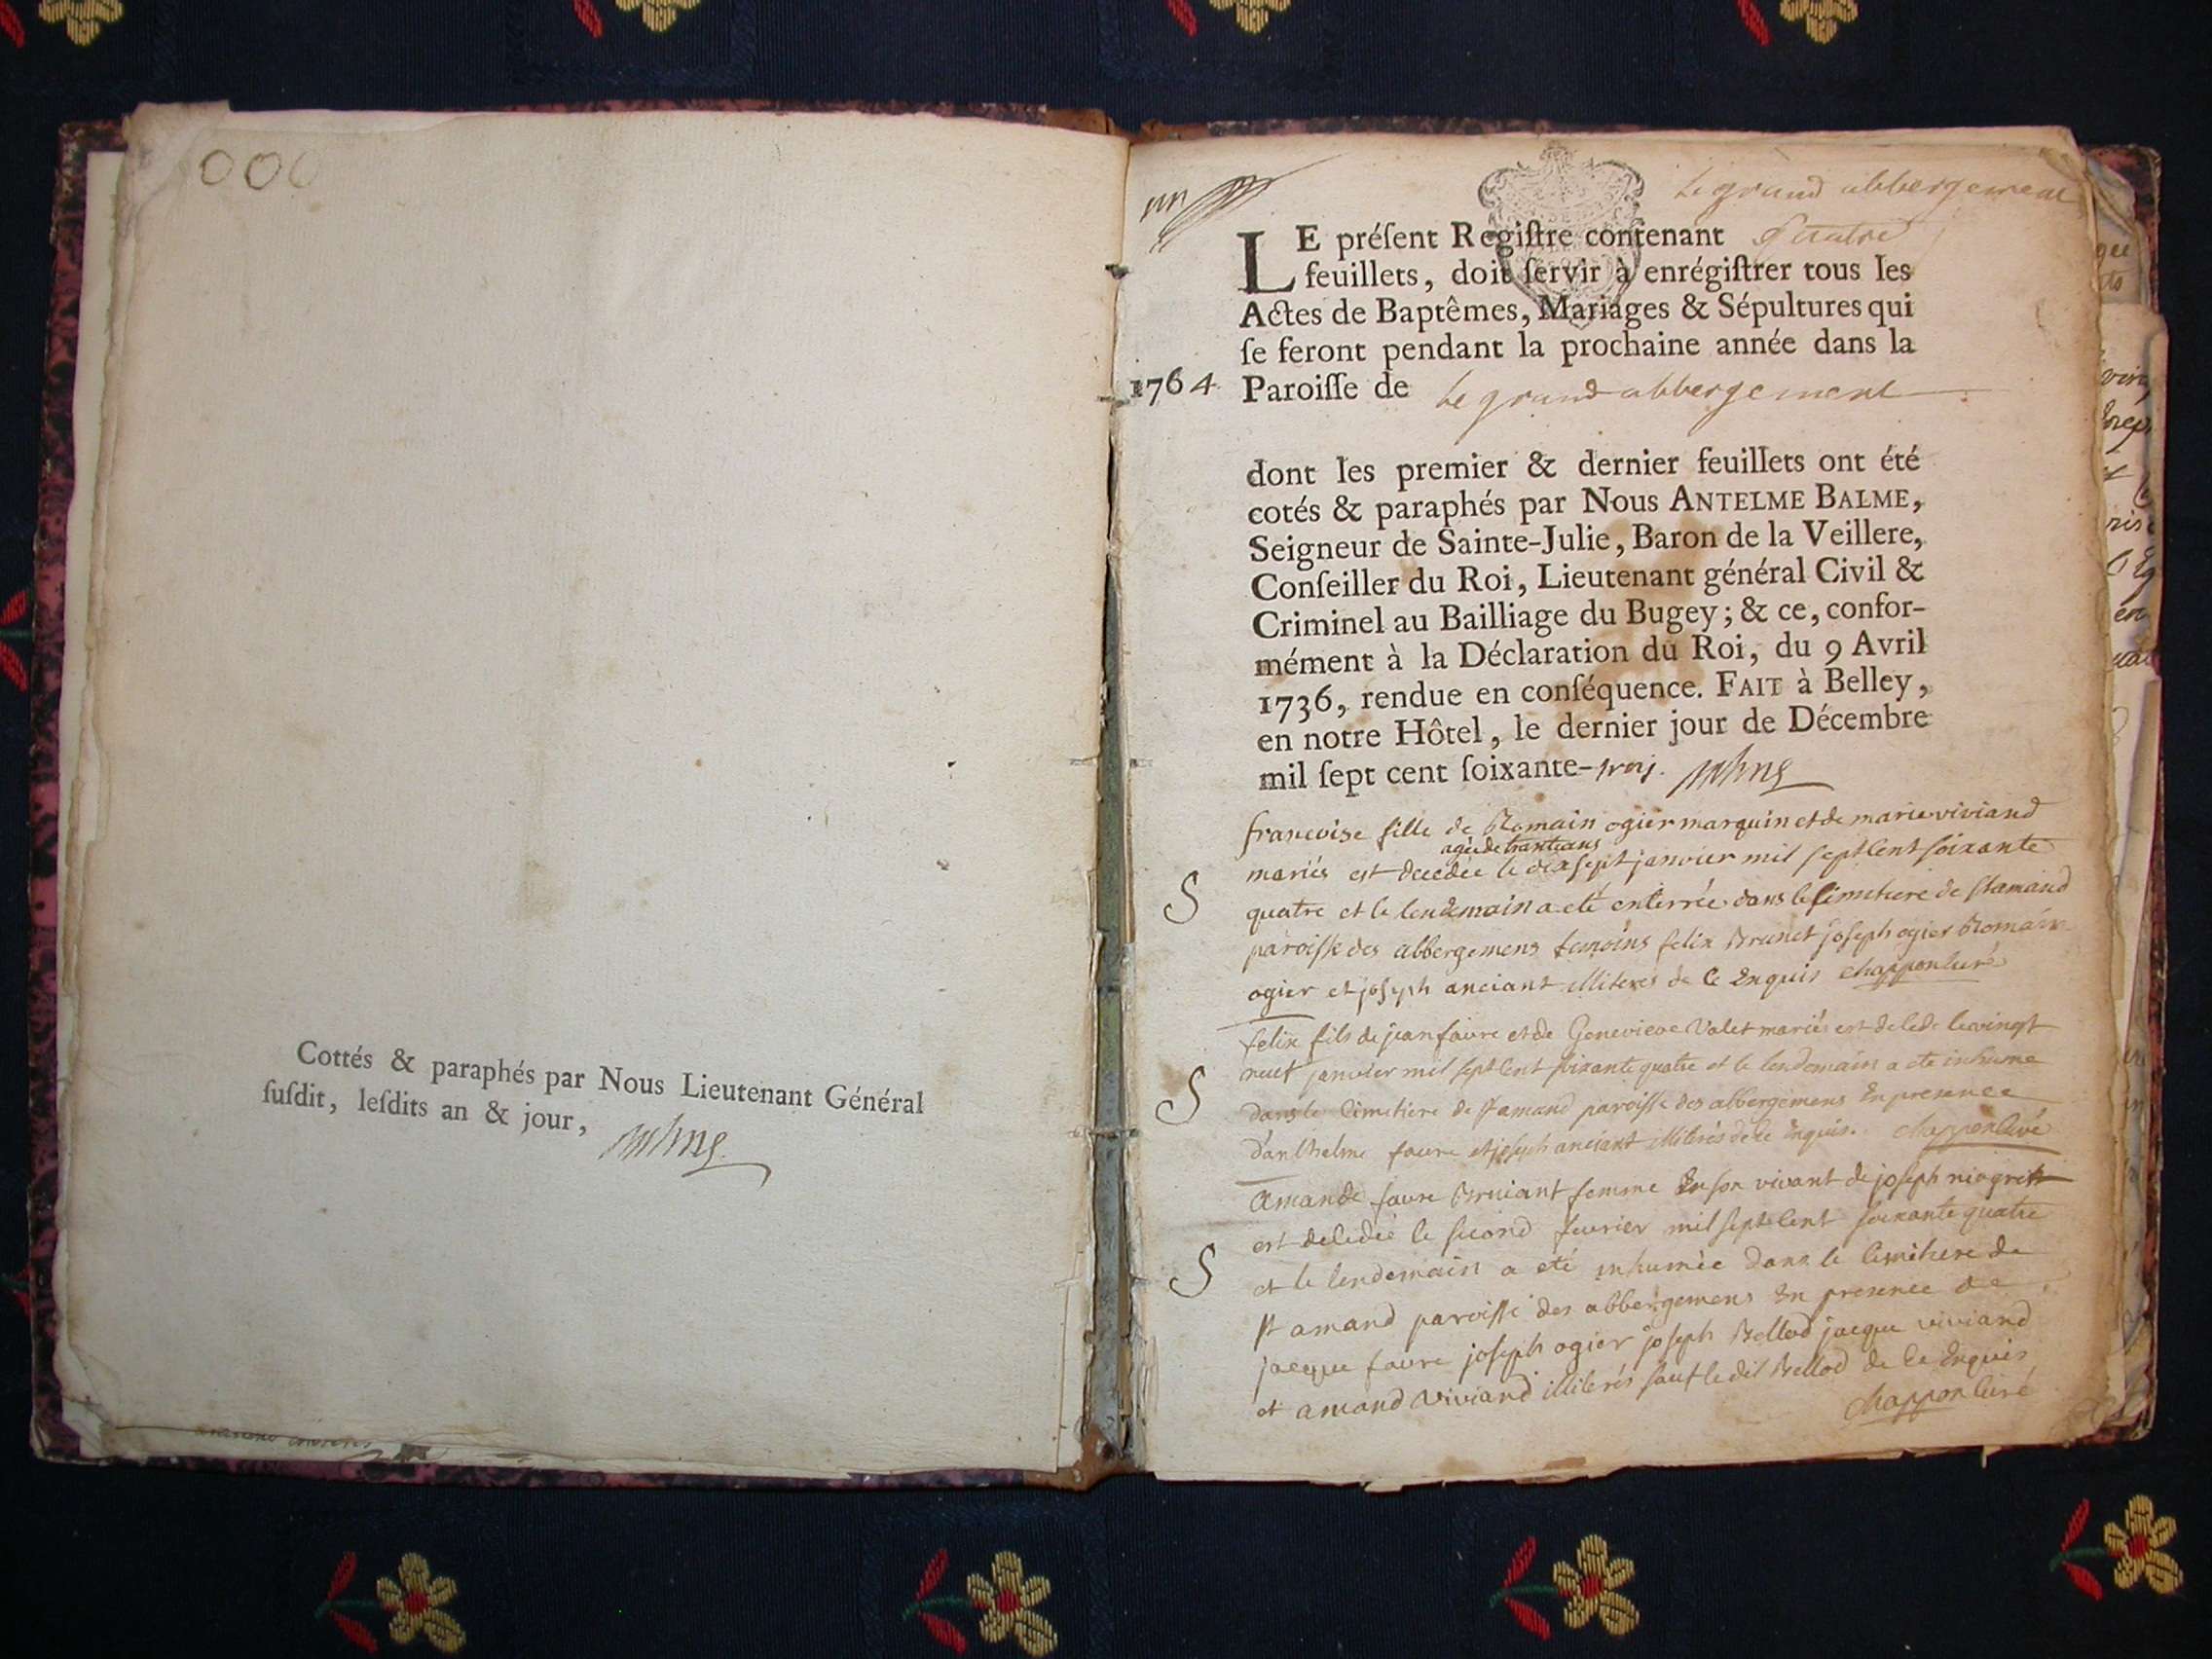 000
Cottés & paraphés par Nous Lieutenant Général
ſuſdit, leſdits an & jour,
Le grand abbergement
LE préſent Regiſtre contenant quatre
feuillets, doit ſervir à enrégiſtrer tous les
Actes de Baptêmes, Mariages & Sépultures qui
ſe feront pendant la prochaine année dans la
1764 Paroiſſe de Le grand abbergement
dont les premier & dernier feuillets ont été
cotés & paraphés par Nous ANTELME BALME,
Seigneur de Sainte-Julie, Baron de la Veillere,
Conſeiller du Roi, Lieutenant général Civil &
Criminel au Bailliage du Bugey; & ce, confor-
mément à la Déclaration du Roi, du 9 Avril
1736, rendue en conſéquence. FAIT à Belley,
en notre Hôtel, le dernier jour de Décembre
mil ſept cent ſoixante-trois.
francoise fille de Romain ogier marquin et de marie viviand
agée de trante ans
mariés est decedée le dix sept janvier mil sept cent soixante
S quatre et le lendemain a eté enterrée dans le cimetiere de st amand
paroisse des abbergemens temoins felix Brunet joseph ogier Romain
ogier et joseph anciant illiterés de ce Enquis chappon curé
felix fils de jean favre et de Genevieve Valet mariés est decede le vingt
S neuf janvier mil sept cent soixante quatre et le lendemain a ete inhume
dans le Cimetiere de st amand paroisse des abbergemens En presence
d'anthelme favre et joseph anciant illiterés de ce Enquis. chappon Curé
Amande favre Bruiant femme En son vivant de joseph niogret
est decedée le second fevrier mil sept cent soixante quatre
S et le lendemain a eté inhumée dans le cimetiere de
st amand paroisse des abbergemens En presence de
jacque favre joseph ogier joseph Bellod jacque viviand
et amand Viviand illiterés sauf le dit Bellod de ce Enquis
chappon curé